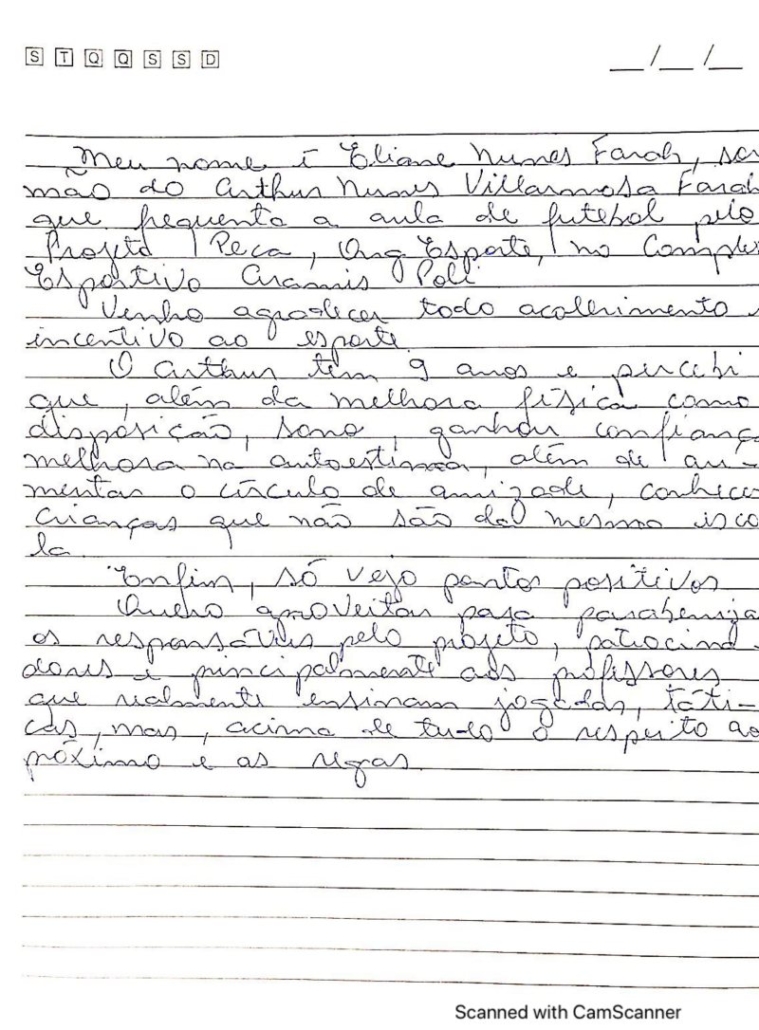 S T Q Q S S D
__/__/__
Meu nome é Eliane Nunes Farah, sou
mão do Arthur Nunes Villarmosa Farah
que frequenta a aula de futebol pelo
Projeto Peca, Ong Esporte, no Complex
Esportivo Aramis Poli
Venho agradecer todo acolhimento e
incentivo ao esporte.
O Arthur tem 9 anos e percebi
que, além da melhora física como
disposição, sono, ganhou confianç
melhora na autoestima, além de au-
mentar o círculo de amizade, conhecer
crianças que não são da mesma esco
la.
Enfim, só vejo pontos positivos
Quero aproveitar para parabeniza
os responsáveis pelo projeto, patrocina
dores e principalmente aos professores
que realmente ensinam jogadas, táti-
cas, mas, acima de tudo o respeito ao
próximo e as regras.
Scanned with CamScanner